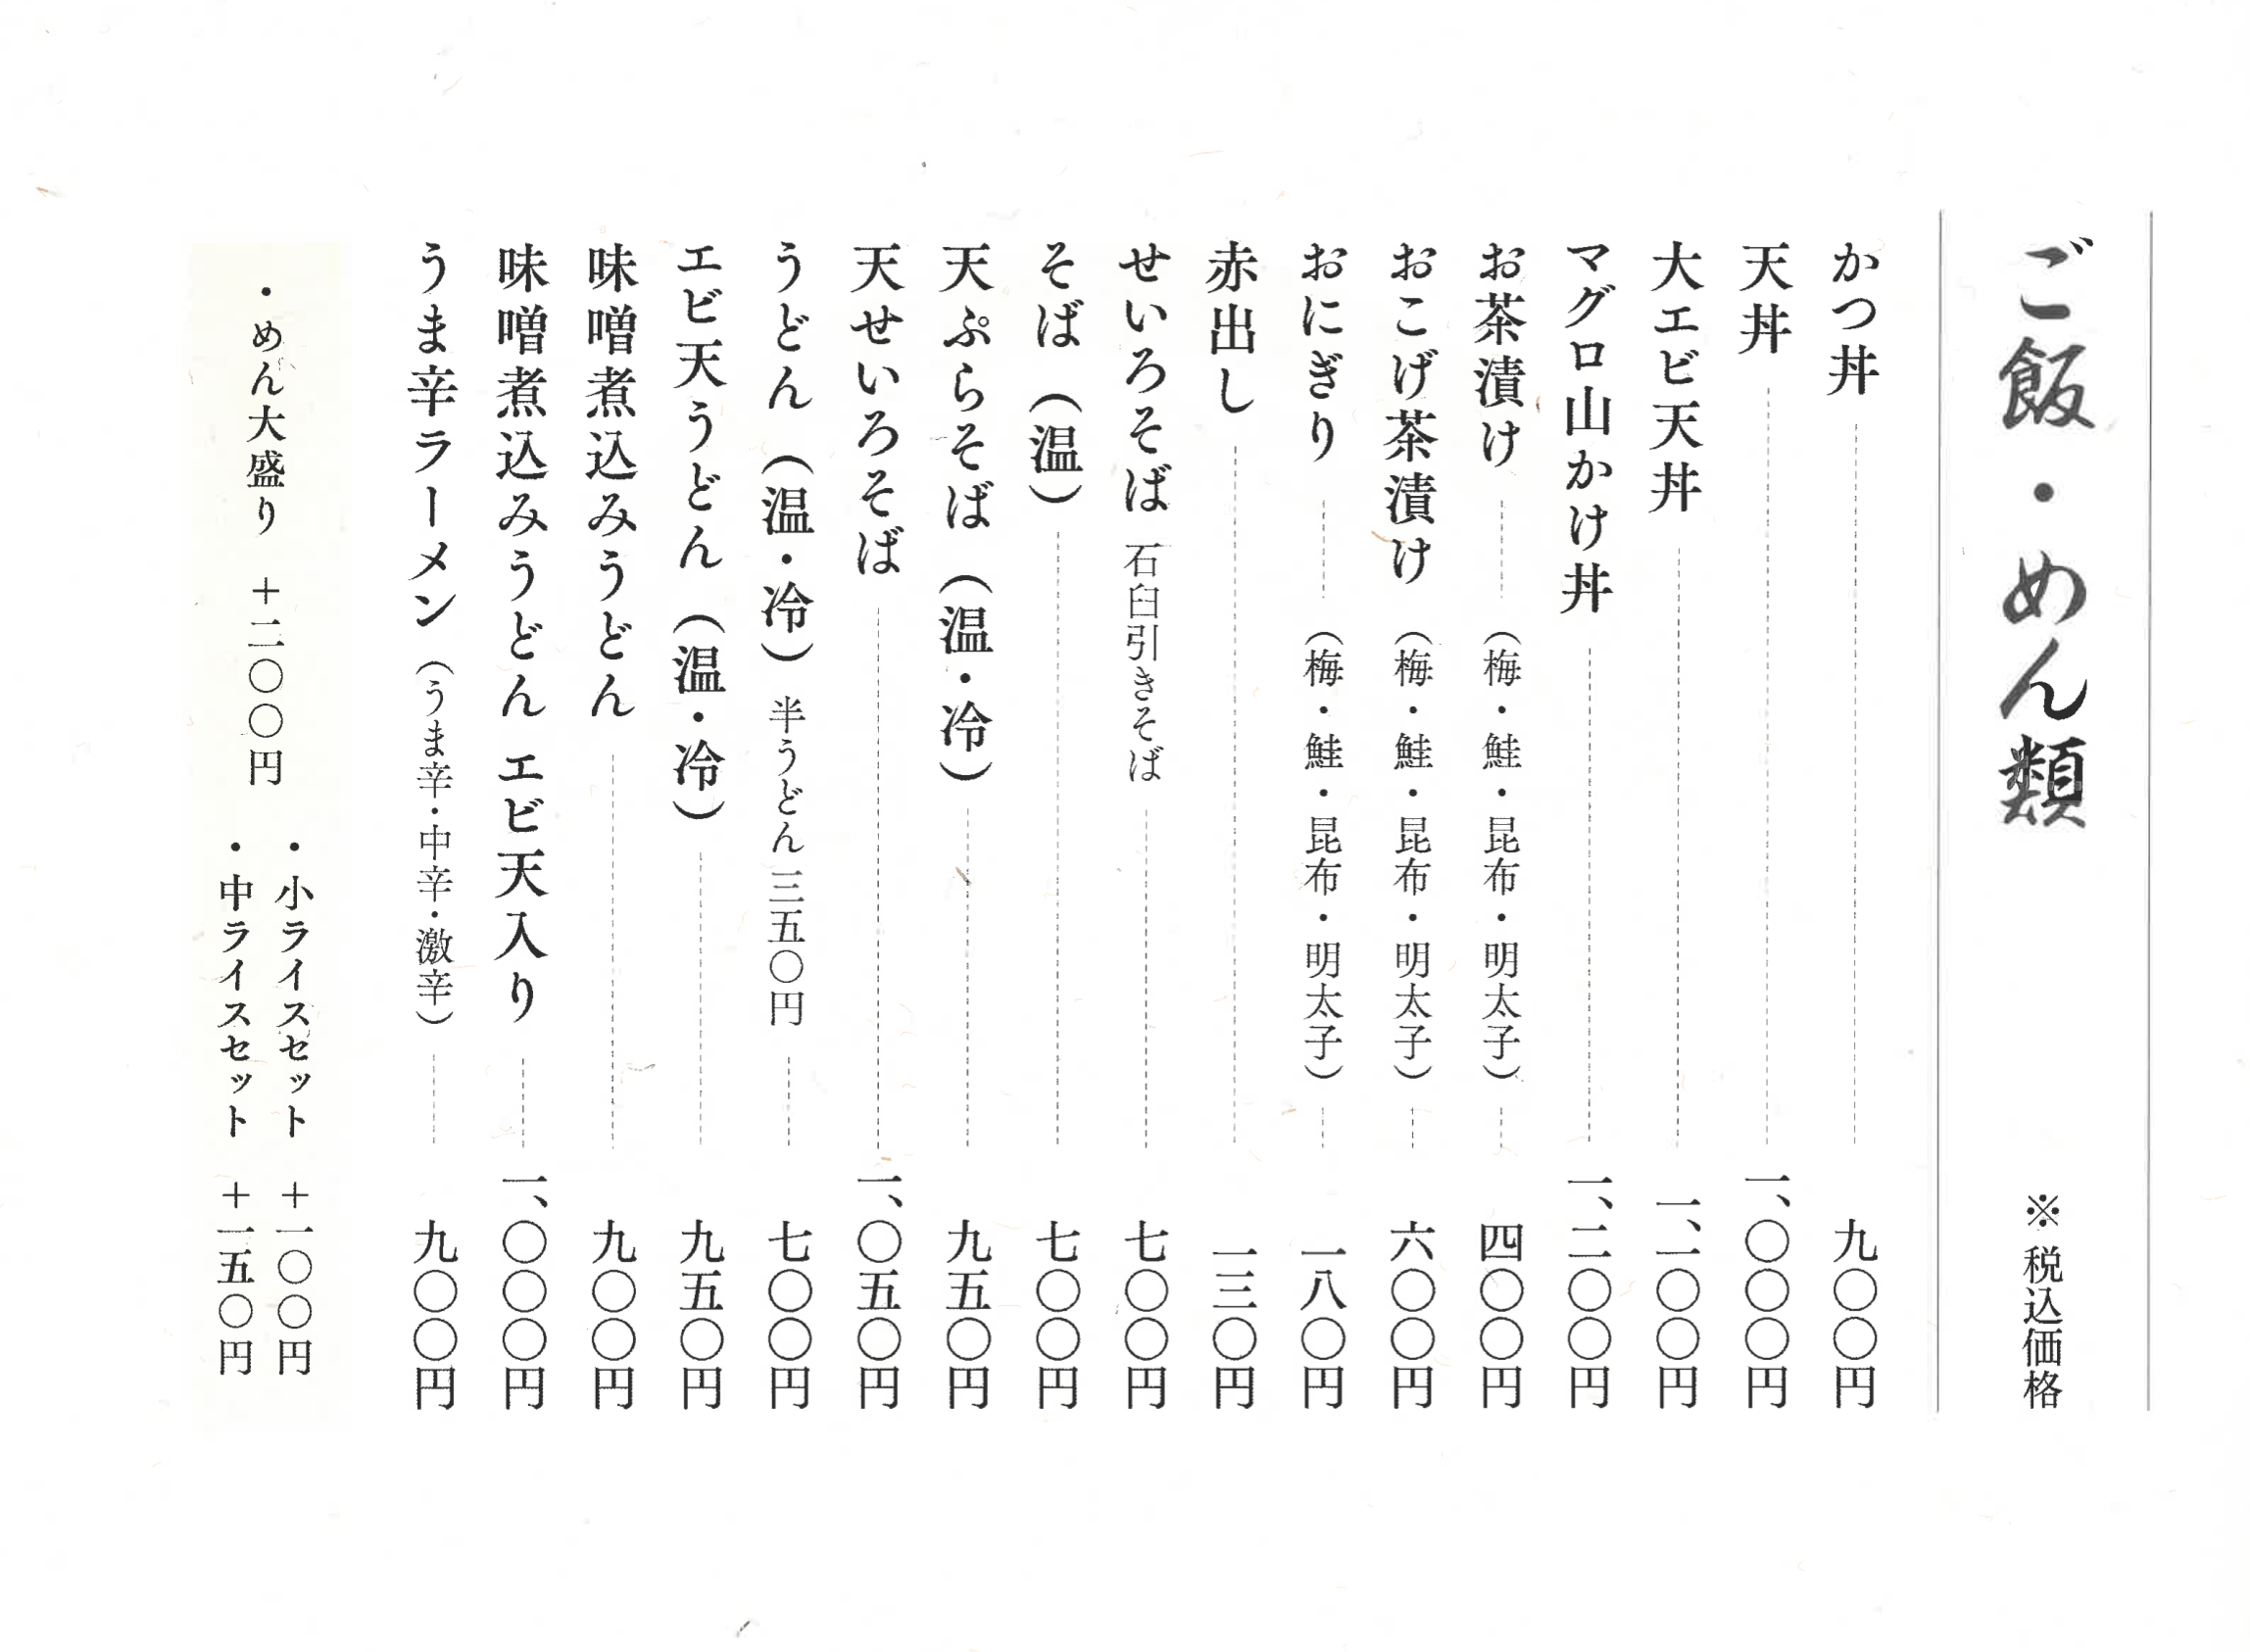 ご飯・めん類 ※税込価格
かつ丼 九〇〇円
天丼 一、〇〇〇円
大エビ天丼 一、一〇〇円
マグロ山かけ丼 一、二〇〇円
お茶漬け (梅・鮭・昆布・明太子) 四〇〇円
おこげ茶漬け (梅・鮭・昆布・明太子) 六〇〇円
おにぎり (梅・鮭・昆布・明太子) 一八〇円
赤出し 一三〇円
せいろそば 石臼引きそば 七〇〇円
そば(温) 七〇〇円
天ぷらそば(温・冷) 九五〇円
天せいろそば 一、〇五〇円
うどん(温・冷) 半うどん 三五〇円 七〇〇円
エビ天うどん(温・冷) 九五〇円
味噌煮込みうどん 九〇〇円
味噌煮込みうどん エビ天入り 一、〇〇〇円
うま辛ラーメン(うま辛・中辛・激辛) 九〇〇円
・めん大盛り +二〇〇円
・小ライスセット +一〇〇円
・中ライスセット +一五〇円